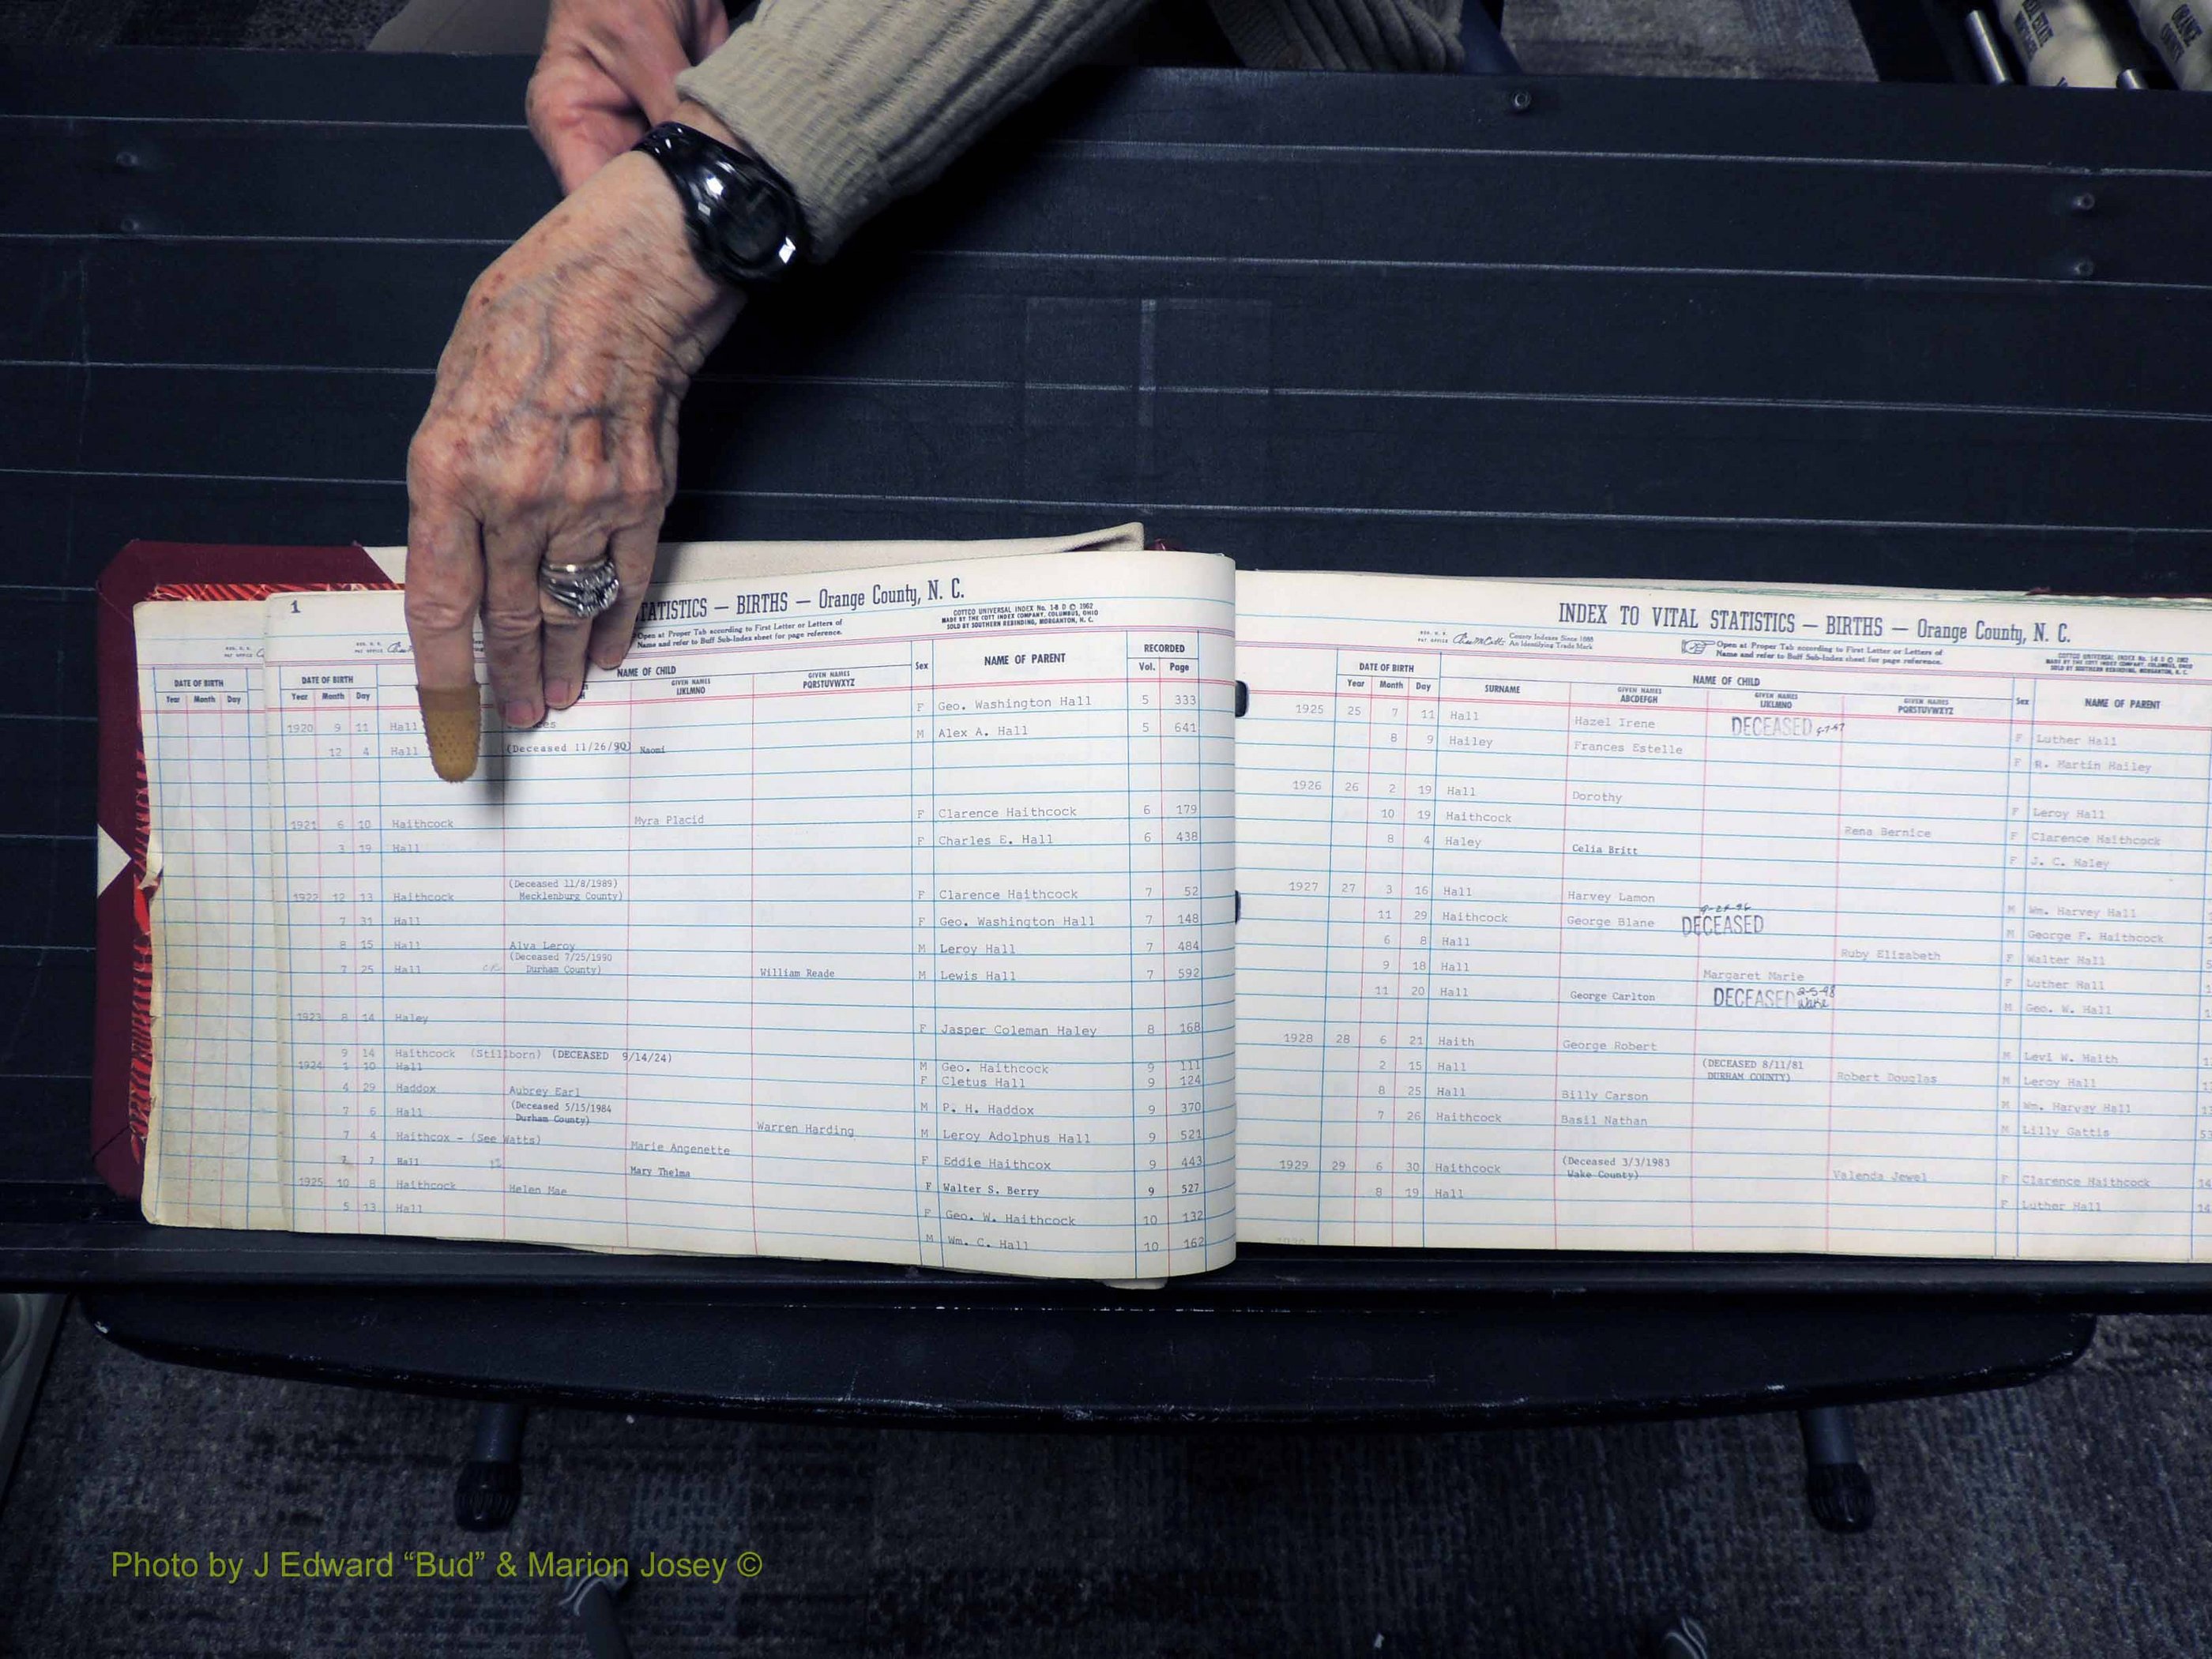 ORANGE
1
STATISTICS — BIRTHS — Orange County, N. C.
COTTCO UNIVERSAL INDEX No. 1-8 D © 1962
MADE BY THE COTT INDEX COMPANY, COLUMBUS, OHIO
SOLD BY SOUTHERN REBINDING, MORGANTON, N. C.
Open at Proper Tab according to First Letter or Letters of
Name and refer to Buff Sub-Index sheet for page reference.
DATE OF BIRTH
Year Month Day
DATE OF BIRTH NAME OF CHILD Sex NAME OF PARENT RECORDED
Year Month Day GIVEN NAMES IJKLMNO GIVEN NAMES PQRSTUVWXYZ Vol. Page
1920 9 11 Hall F Geo. Washington Hall 5 333
12 4 Hall (Deceased 11/26/90) Naomi M Alex A. Hall 5 641
1921 6 10 Haithcock Myra Placid F Clarence Haithcock 6 179
3 19 Hall F Charles E. Hall 6 438
1922 12 13 Haithcock (Deceased 11/8/1989) Mecklenburg County) F Clarence Haithcock 7 52
7 31 Hall F Geo. Washington Hall 7 148
8 15 Hall Alva Leroy M Leroy Hall 7 484
7 25 Hall (Deceased 7/25/1990 Durham County) William Reade M Lewis Hall 7 592
1923 8 14 Haley F Jasper Coleman Haley 8 168
9 14 Haithcock (Stillborn) (DECEASED 9/14/24) M Geo. Haithcock 9 111
1924 1 10 Hall F Cletus Hall 9 124
4 29 Haddox Aubrey Earl M P. H. Haddox 9 370
7 6 Hall (Deceased 5/15/1984 Durham County) Warren Harding M Leroy Adolphus Hall 9 521
7 4 Haithcox - (See Watts) Marie Angenette F Eddie Haithcox 9 443
7 Hall Mary Thelma F Walter S. Berry 9 527
1925 10 8 Haithcock Helen Mae F Geo. W. Haithcock 10 132
5 13 Hall M Wm. C. Hall 10 162
INDEX TO VITAL STATISTICS — BIRTHS — Orange County, N. C.
County Indexes Since 1888
An Identifying Trade Mark
Open at Proper Tab according to First Letter or Letters of
Name and refer to Buff Sub-Index sheet for page reference.
COTTCO UNIVERSAL INDEX No. 1-8 D © 1962
MADE BY THE COTT INDEX COMPANY, COLUMBUS, OHIO
SOLD BY SOUTHERN REBINDING, MORGANTON, N. C.
DATE OF BIRTH NAME OF CHILD Sex NAME OF PARENT
Year Month Day SURNAME GIVEN NAMES ABCDEFGH GIVEN NAMES IJKLMNO GIVEN NAMES PQRSTUVWXYZ
1925 25 7 11 Hall Hazel Irene DECEASED F Luther Hall
8 9 Hailey Frances Estelle F R. Martin Hailey
1926 26 2 19 Hall Dorothy F Leroy Hall
10 19 Haithcock Rena Bernice F Clarence Haithcock
8 4 Haley Celia Britt F J. C. Haley
1927 27 3 16 Hall Harvey Lamon M Wm. Harvey Hall
11 29 Haithcock George Blane DECEASED M George F. Haithcock
6 8 Hall Ruby Elizabeth F Walter Hall
9 18 Hall Margaret Marie F Luther Hall
11 20 Hall George Carlton DECEASED 2-5-98 Wake M Geo. W. Hall
1928 28 6 21 Haith George Robert M Levi W. Haith
2 15 Hall (DECEASED 8/11/81 DURHAM COUNTY) Robert Douglas M Leroy Hall
8 25 Hall Billy Carson M Wm. Harvey Hall
7 26 Haithcock Basil Nathan M Lilly Gattis
1929 29 6 30 Haithcock (Deceased 3/3/1983 Wake County) Valenda Jewel F Clarence Haithcock
8 19 Hall F Luther Hall
Photo by J Edward “Bud” & Marion Josey ©